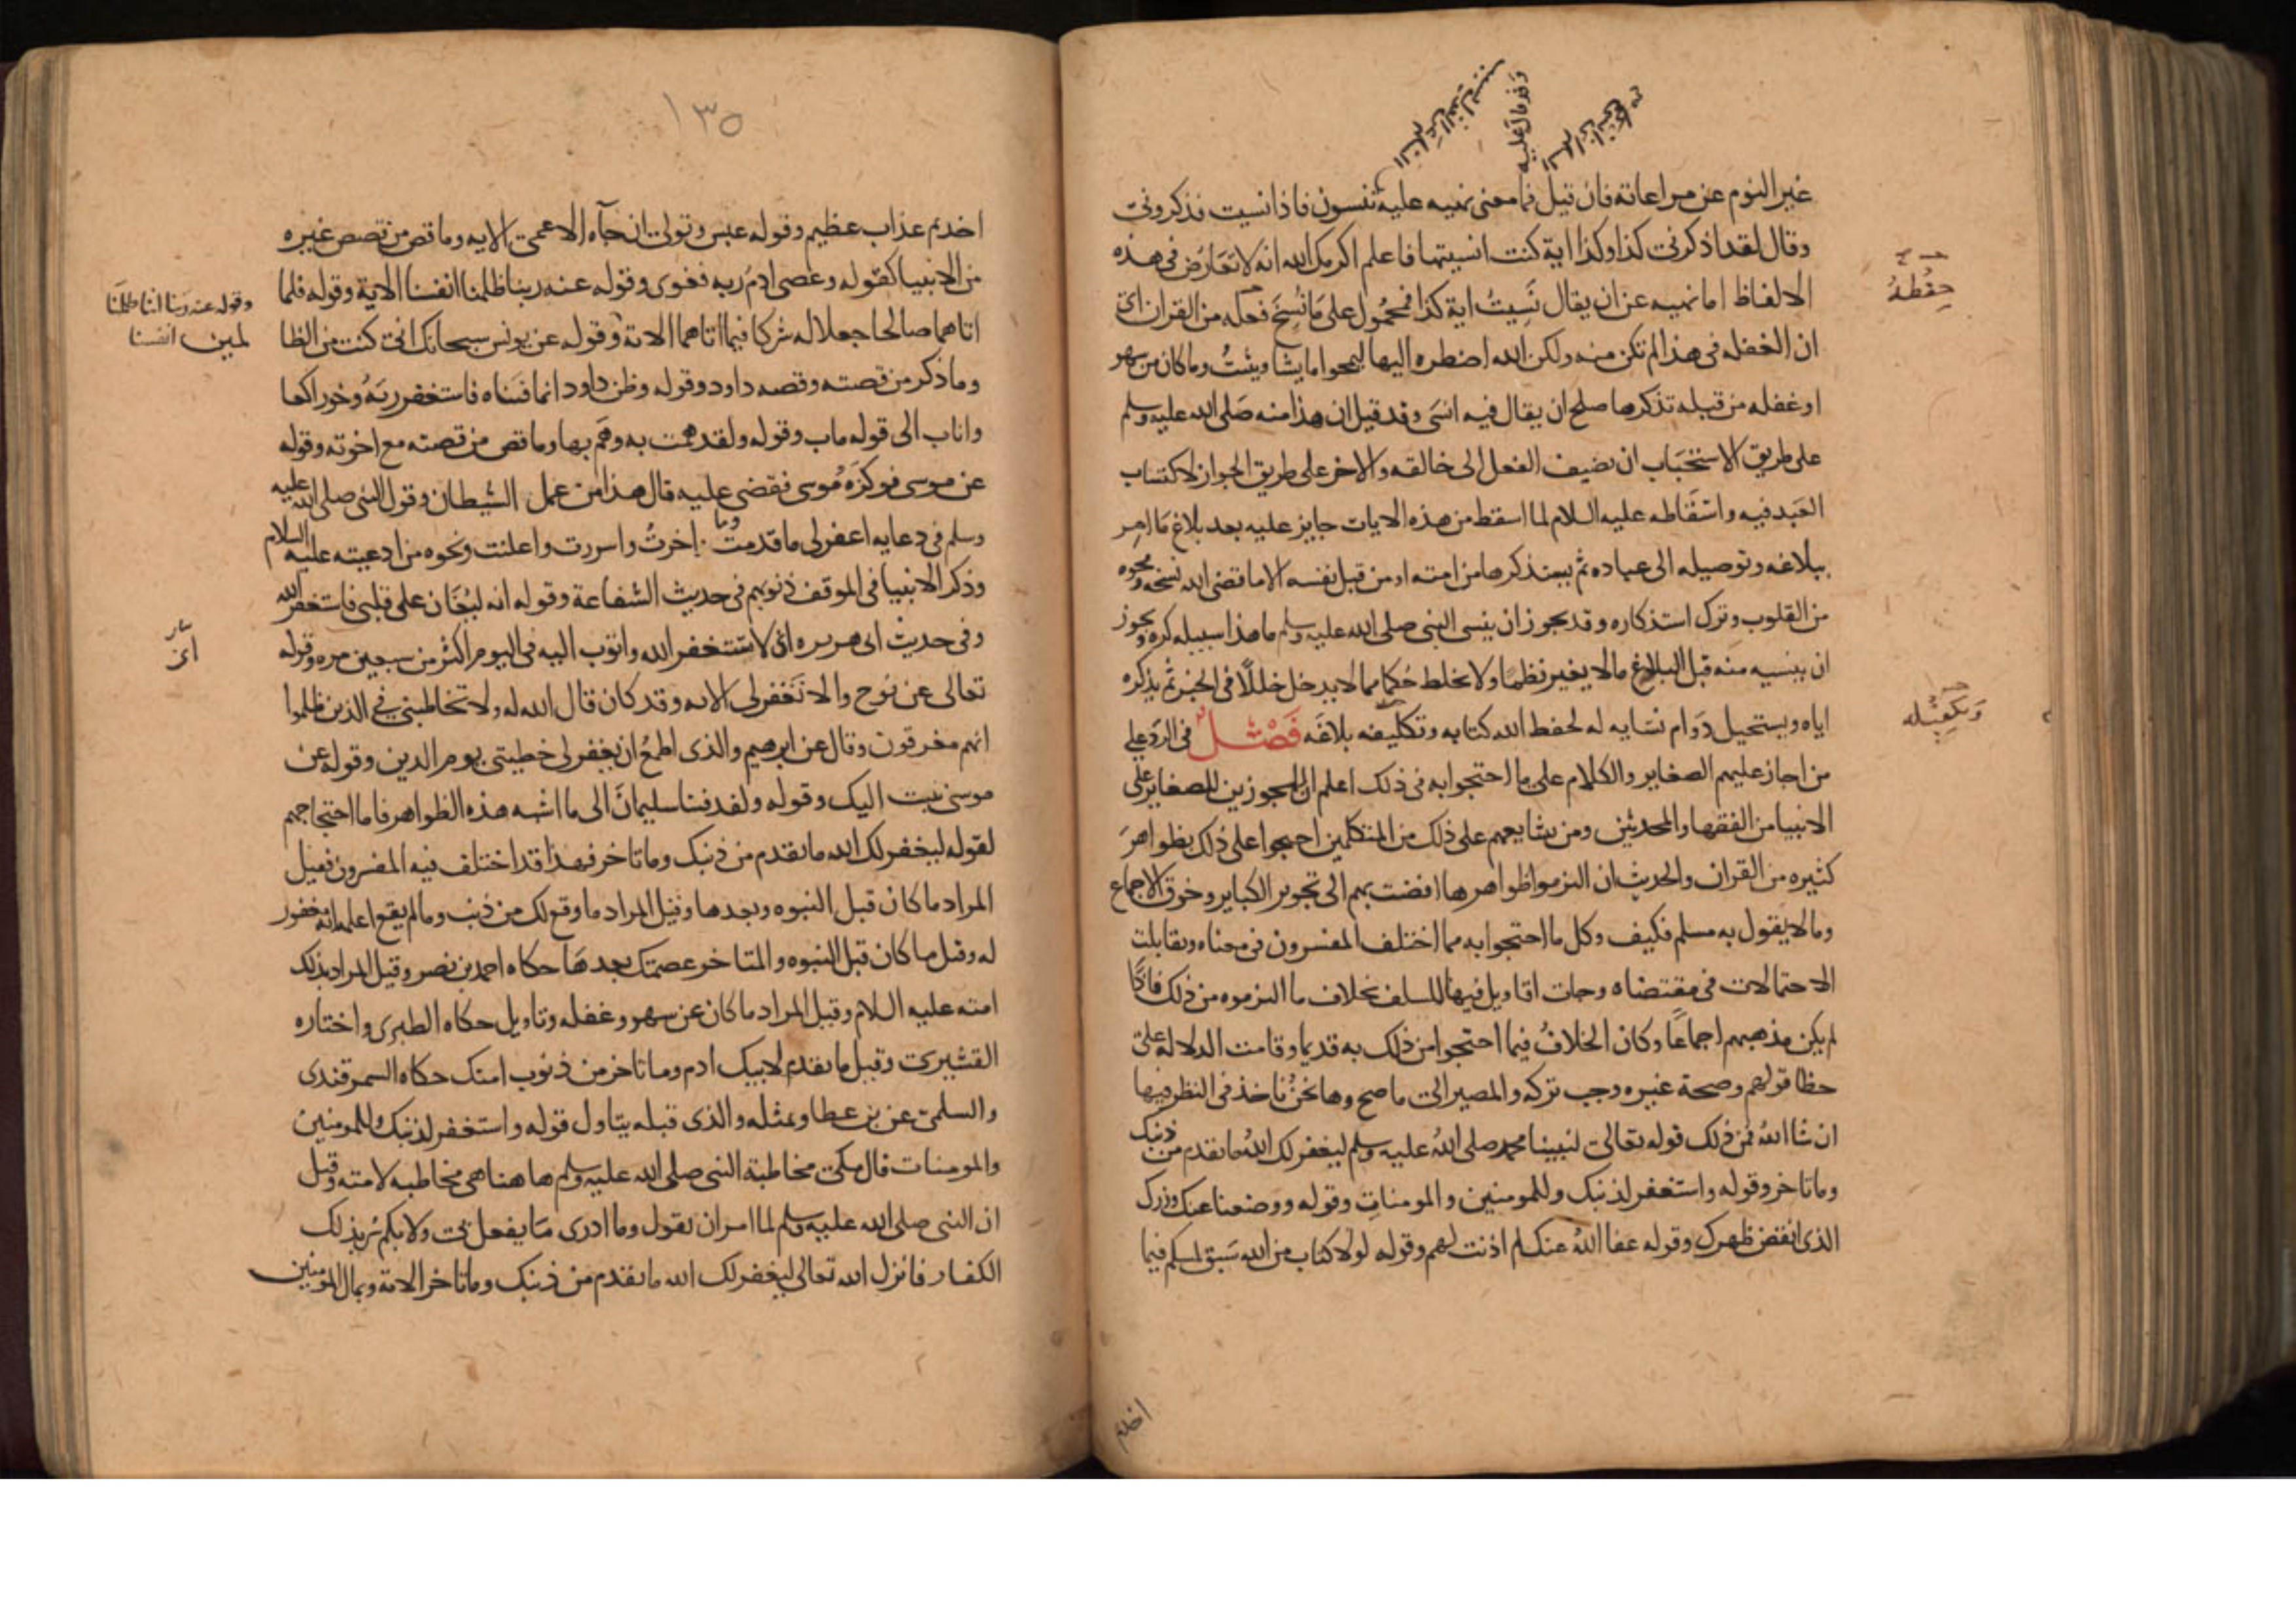 غير النوم عن مراعاته فان قيل فما معنى نهيه عليه تنسون فاذا نسيت فذكروني
وقال لقد اذكرني كذا وكذا اية كنت انسيتها فاعلم اكرمك الله انه لا تعارض في هذه
الالفاظ اما نهيه عن ان يقال نَسِيتُ اية كذا فمحمُول على مَا نُسِخَ فعله من القران اي
ان الغفله في هذا لم تكن منه ولكن الله اضطره اليها ليمحوا ما يشا ويثبتُ وما كان من سهو
او غفله من قبله تذكرها صلح ان يقال فيه انسَى وقد قيل ان هذا منه صَلى الله عليه وسلم
على طريق الاستحبَاب ان يضيف الفعل الى خالقه والاخر على طريق الجواز لاكتساب
العَبد فيه واسْقَاطه عليه السلام لما اسقط من هذه الايات جايز عليه بعد بلاغ مَا امِر
ببلاغه وتوصيله الى عباده ثم يستذكرها من امته او من قبل نفسه الا ما قضى الله نسخه ومحوه
من القلوب وترك استذكاره وقد يجوز ان ينسى النبى صلى الله عليه وسلم ما هذا سبيله كره ويجوز
ان ينسيه منه قبل البلاغ ما لا يغير نظمًا ولا يخلط حُكما مما لا يدخل خللًا في الخبر ثم يذكره
اياه ويستحيل دَوام نسَيانه له لحفظ الله كتابه وتكليفه بلاغَه فَصْل في الرد على
من اجاز عليهم الصغاير والكلام على ما احتجوا به في ذلك اعلم ان المجوزين للصغاير على
الانبيا من الفقها والمحدثين ومن شايعهم على ذلك من المتكلمين احتجوا على ذلك بظواهرَ
كثيره من القران والحديث ان التزموا ظواهرها افضت بهم الى تجويز الكباير وخرق الاجماع
وما لا يقول به مسلم فكيف وكل ما احتجوا به مما اختلف المفسرون في معناه وتقابلت
الاحتمالات في مقتضاه وجات اقاويل فيها للسلف بخلاف ما التزموه من ذلك فاذا
لم يكن مذهبهم اجماعًا وكان الخلافُ فيما احتجوا من ذلك به قديما وقامت الدلاله على
خطا قولهم وصحة غيره وجب تركه والمصير الى ما صح وها نحنُ ناخذ في النظر فيها
ان شا اللهُ فمن ذلك قوله تعالى لنبينا محمد صلى اللهُ عليه وسلم ليغفر لك اللهُ ما تقدم من ذنبك
وما تاخر وقوله واستغفر لذنبك وللمومنين والمومناتِ وقوله ووضعنا عنك وزرك
الذى انقض ظهرك وقوله عفا اللهُ عنك لم اذنت لهم وقوله لولا كتاب من الله سَبق لمسكم فيما
وقد قال عليه
اخذتم
١٣٥
اخذتم عذاب عظيم وقوله عبس وتولى ان جآه الاعمى الايه وما قص من قصص غيره
من الانبيا كقوله وعصى ادمُ ربه فغوى وقوله عنه ربنا ظلمنا انفسنا الاية وقوله فلما
اتاهما صالحا جعلا له شركا فيما اتاهما الاية وقوله عن يونس سبحانك اني كنت من الظا
لمين
وقوله عنه ربنا اننا ظلمنا
انفسنا
وما ذكر من قصته وقصه داود وقوله وظن داود انما فتناه فاستغفر ربهُ وخر راكعا
واناب الى قوله ماب وقوله ولقد همت به وهَم بها وما قص من قصته مع اخوته وقوله
عن موسى فوكزَه مُوسى فقضى عليه قال هذا من عمل الشيطان وقول النبى صلى الله عليه
وسلم في دعايه اغفر لى ما قدمتُ وما اخرتُ واسررت واعلنت ونحوه من ادعيته عليه السلام
وذكر الانبيا في الموقف ذنوبهم في حديث الشفاعة وقوله انه ليُغَان على قلبى فاستغفر الله
وفى حديث ابى هريره انى لاستغفر الله واتوب اليه في اليوم اكثر من سبعين مره وقوله
تعالى عن نوح والا تَغفر لى الايه وقد كان قال الله له ولا تخاطبني في الذين ظلموا
انهم مغرقون وقال عن ابرهيم والذى اطمعُ ان يغفر لى خطيتى يوم الدين وقوله عن
موسى تبت اليك وقوله ولقد فتنا سليمانَ الى ما اشبه هذه الظواهر فاما احتجاجهم
لقوله ليغفر لك الله ما تقدم من ذنبك وما تاخر فهذا قد اختلف فيه المفسرون فقيل
المراد ما كان قبل النبوه وبعدها وقيل المراد ما وقع لك من ذنب وما لم يقع اعلمه انه مغفور
له وقيل ما كان قبل النبوه والمتاخر عصمتك بعدهَا حكاه احمد بن نصر وقيل المراد بذلك
امته عليه السلام وقيل المراد ما كان عن سهو وغفله وتاويل حكاه الطبرى واختاره
القشيرى وقيل ما تقدم لابيك ادم وما تاخر من ذنوب امتك حكاه السمرقندى
والسلمى عن بن عطا وبمثله والذى قبله يتاول قوله واستغفر لذنبك وللمومنين
والمومنات قال مكى مخاطبة النبى صلى الله عليه وسلم هاهنا هى مخاطبه لامته وقيل
ان النبى صلى الله عليه وسلم لما امر ان يقول وما ادرى مَا يفعل بى ولا بكم سُر بذلك
الكفار فانزل الله تعالى ليغفر لك الله ما تقدم من ذنبك وما تاخر الاية وبمال المومنين